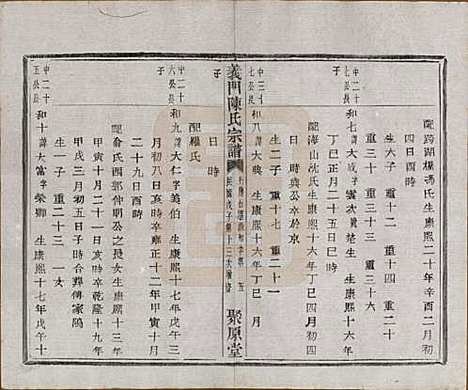 配跨湖橋馮氏生康熙二十年辛酉二月初
四日酉時
生六子 重十二 重十四
重三十 重三十三 重三十六
中二十七公長子
和七 諱大成字雲次 生康熙十六年
丁巳正月二十五日巳時
配海山沈氏生康熙十六年丁巳四月初
日時與公卒於京
生二子 重二十 重二十一
中三十七公長子
和八 諱大典 生康熙十六年丁巳 月
日時
義門陳氏宗譜
聚原堂
配羅氏
中二十六公長子
和九 諱大仁字美伯 生康熙十七年戊午三
月初八日亥時卒雍正十二年甲寅十月
二十九日酉時
配俞氏酉郭仲明公之長女生康熙十三年
甲寅十月二十日亥時卒乾隆十九年
甲戌三月初五日子時合葬傅家塢
生一子 重二十三
中二十五公長子
和十 諱大富字榮卿 生康熙十七年戊午十